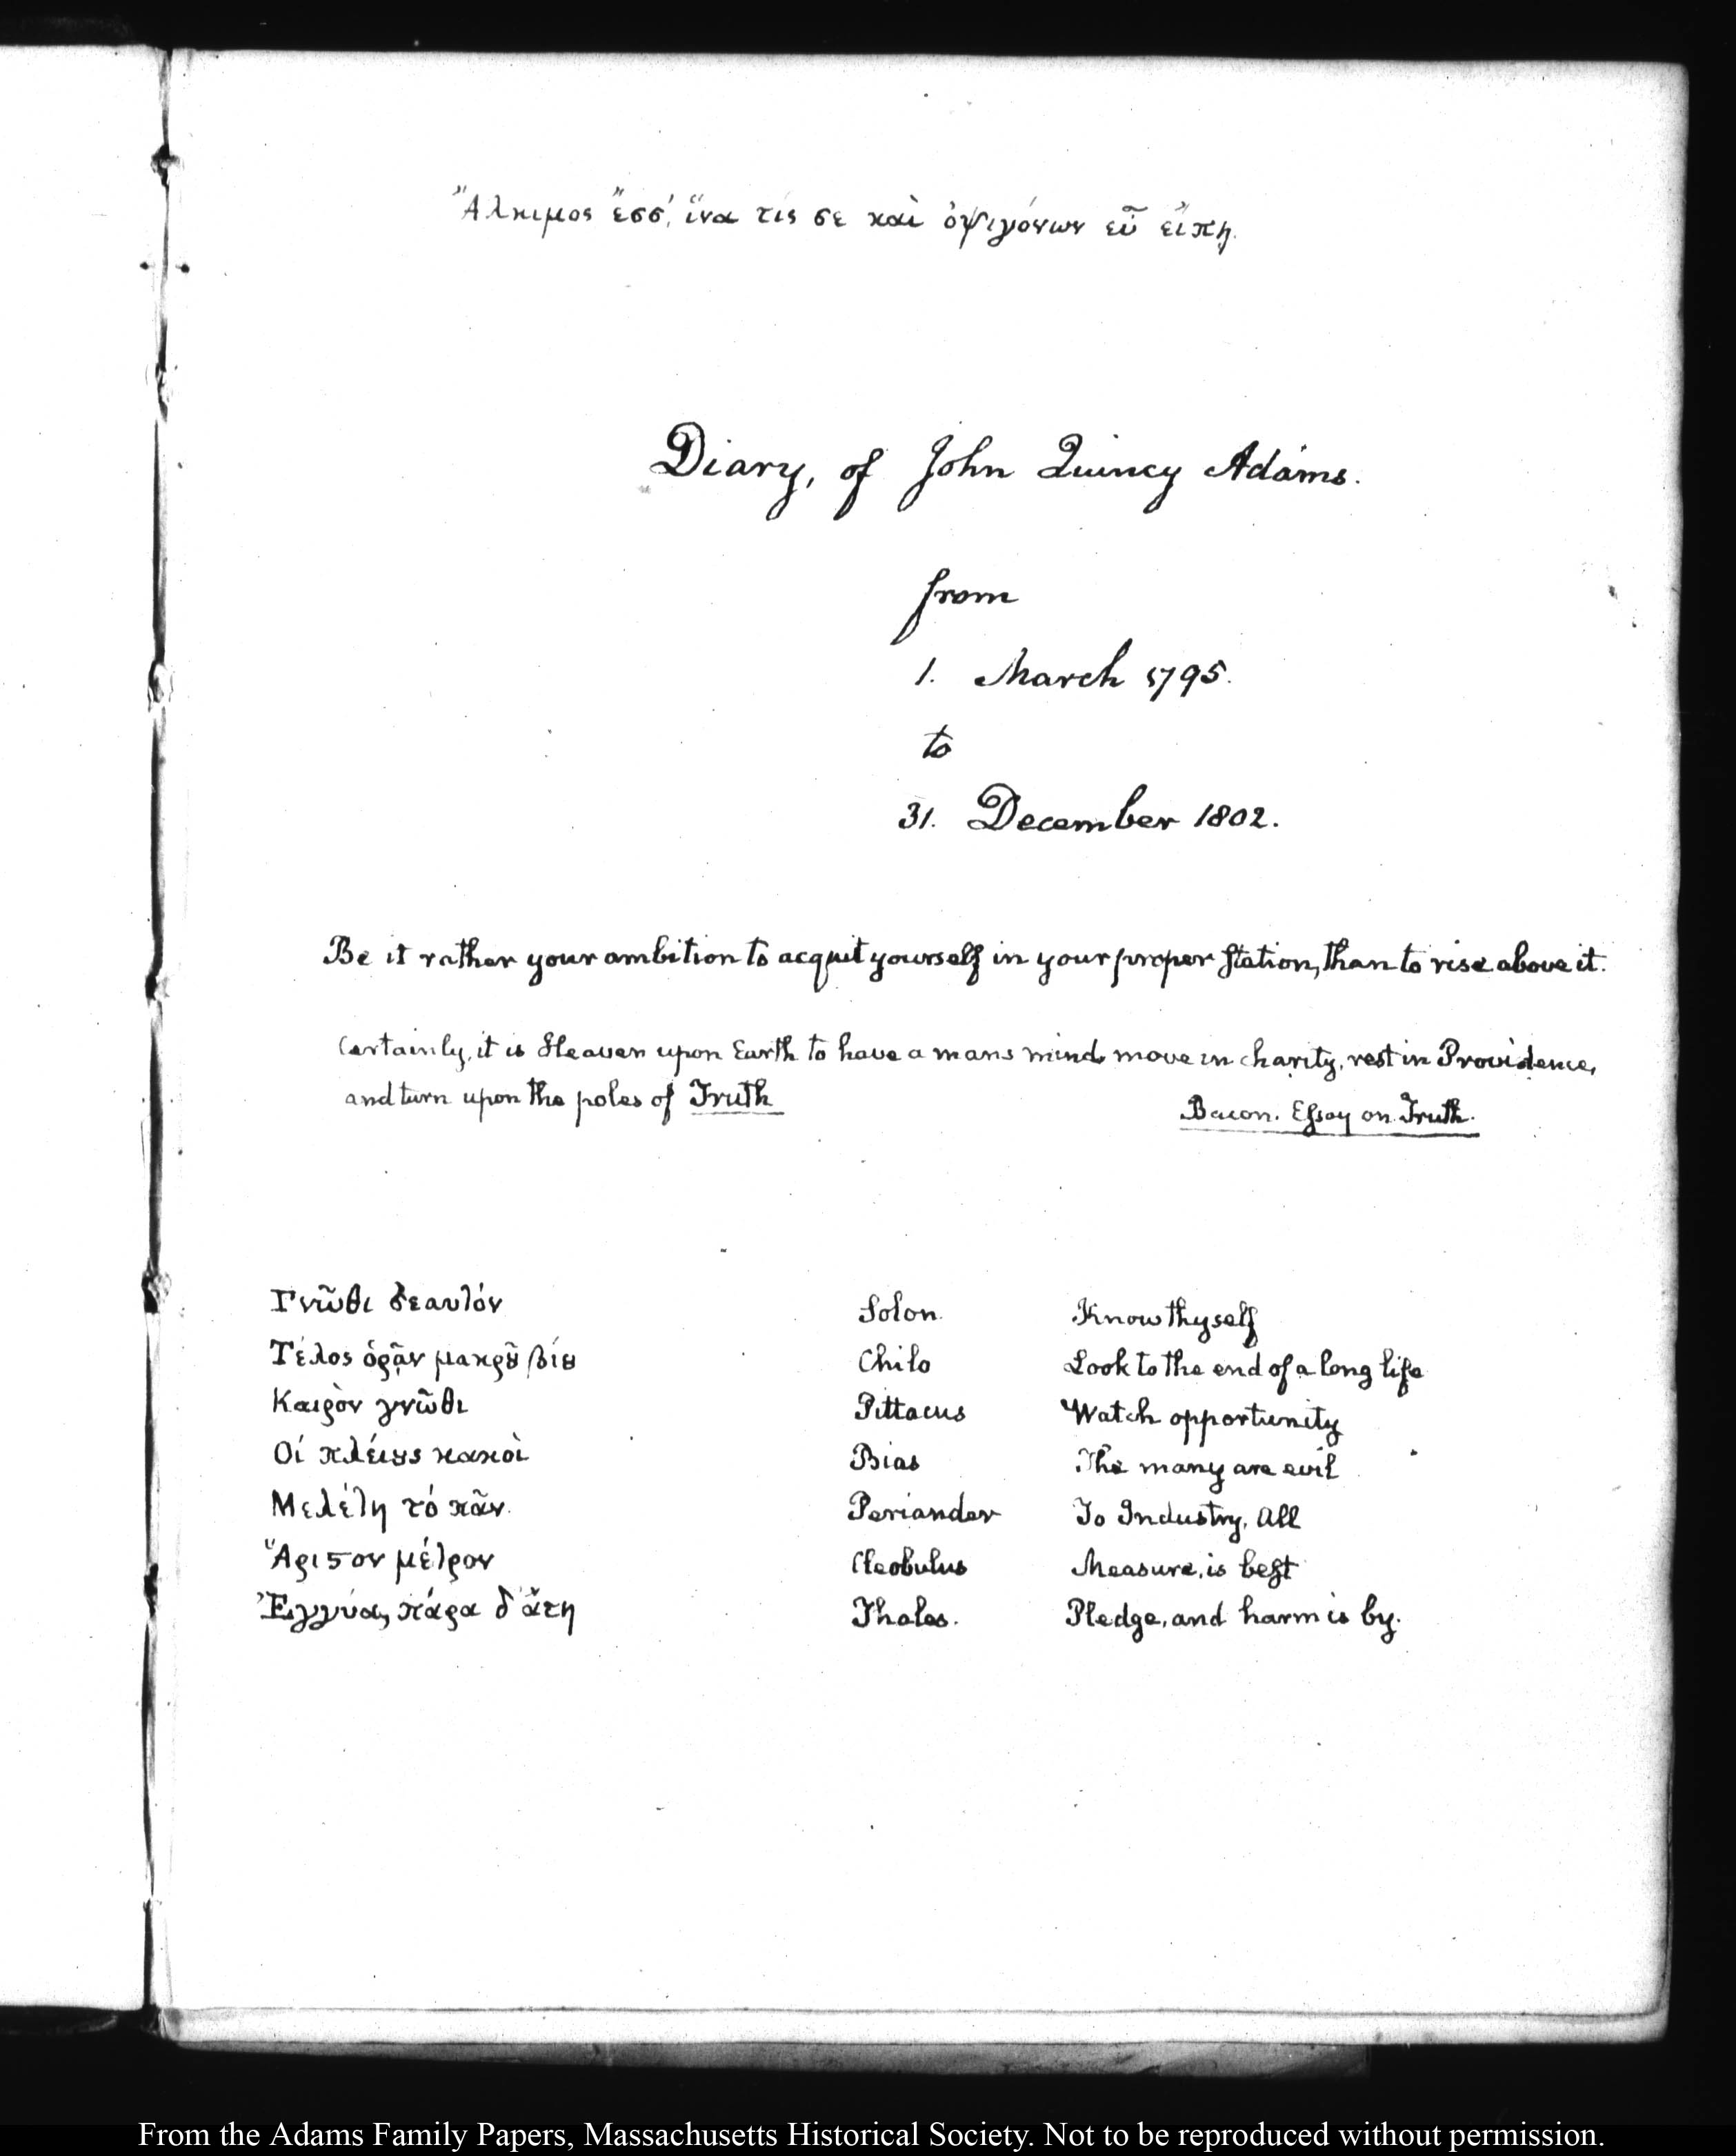 Ἄλκιμος ἔσσ', ἵνα τίς σε καὶ ὀψιγόνων εὖ εἴπη.
Diary, of John Quincy Adams.
from
1. March 1795.
to
31. December 1802.
Be it rather your ambition to acquit yourself in your proper Station, than to rise above it.
Certainly, it is Heaven upon Earth to have a mans mind move in charity, rest in Providence,
and turn upon the poles of Truth
Bacon. Essay on Truth.
Γνῶθι σεαυτόν Solon. Know thyself
Τέλος ὁρᾷν μακρȣ͂ βίȣ Chilo Look to the end of a long life
Καιρὸν γνῶθι Pittacus Watch opportunity
Οἱ πλείȣς κακοὶ Bias The many are evil
Μελέτη τό πᾶν. Periander To Industry, All
Ἄριϛον μέτρον Cleobulus Measure, is best
Ἐγγύα, πάρα δ'ἄτη Thales. Pledge, and harm is by.
From the Adams Family Papers, Massachusetts Historical Society. Not to be reproduced without permission.